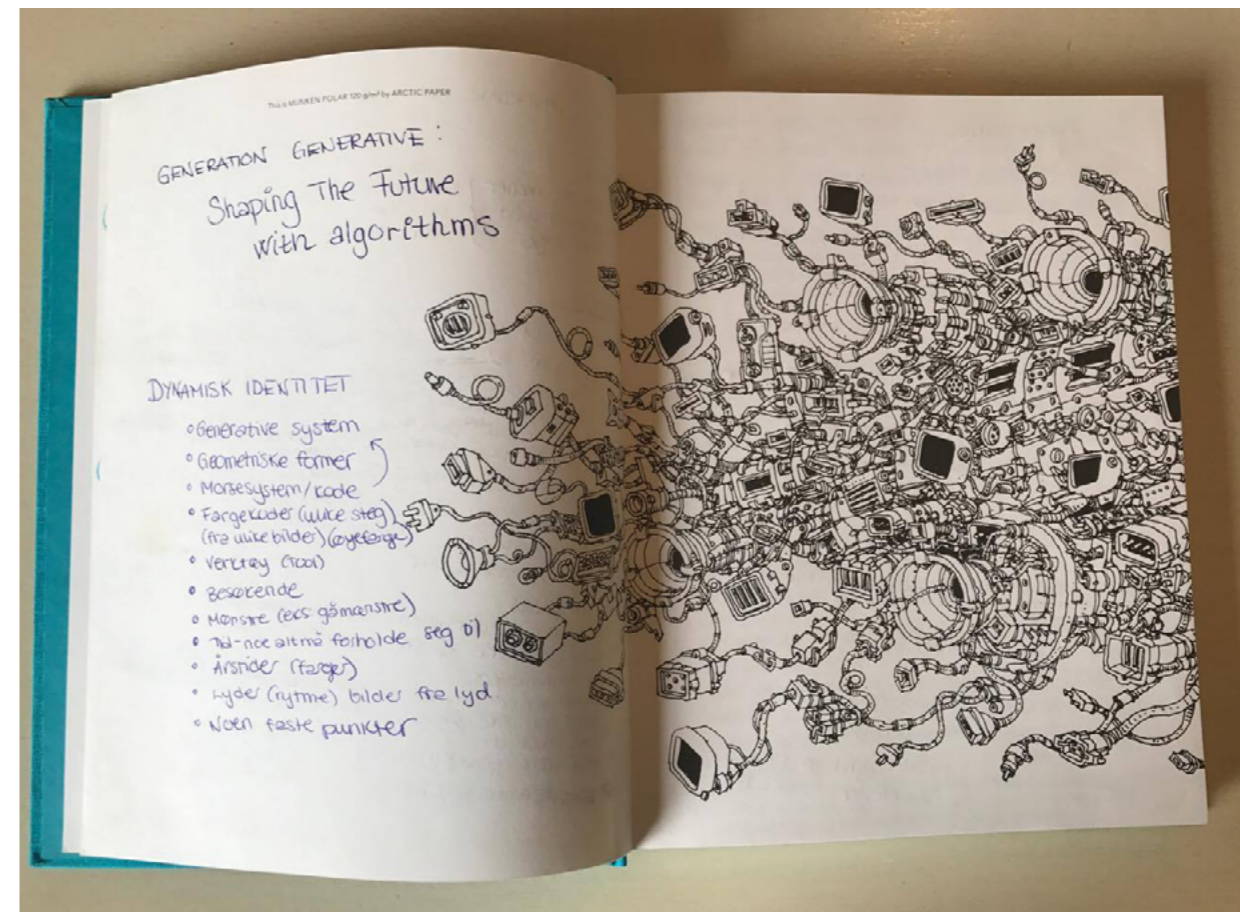 This is MUNKEN POLAR 120 g/m² by ARCTIC PAPER
GENERATION GENERATIVE:
Shaping The Future
with algorithms
DYNAMISK IDENTITET
• Generative system
• Geometriske former
• Morsesystem/kode
• Fargekoder (ulike steg)
(fra ulike bilder) (øyefarge)
• Verktøy (Tool)
• Besøkende
• Mønstre (eks gåmønstre)
• Tid-noe alt må forholde seg til
• Årstider (farger)
• Lyder (rytme) bilder fra lyd.
• Noen faste punkter